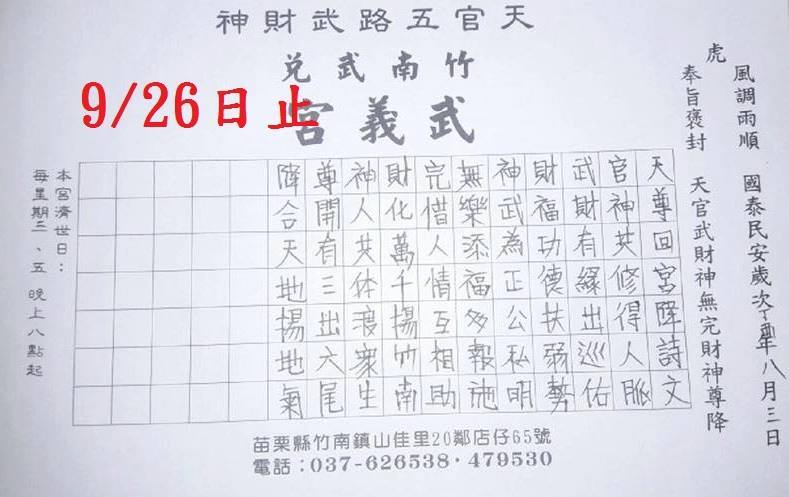 天官五路武財神
竹南武兌
武義宮
9/26日止
風調雨順 國泰民安歲次丁酉年八月三日
虎
奉旨褒封 天官武財神無完財神尊降
天尊回宮降詩文
官神共修得人脈
武財有緣出巡佑
財福功德扶弱勢
神武為正公私明
無樂添福多報施
完借人情互相助
財化萬千揚竹南
神人共体渡眾生
尊開有三出六尾
降合天地揚地氣
本宮濟世日：
每星期三、五 晚上八點起
苗栗縣竹南鎮山佳里20鄰店仔65號
電話：037-626538・479530